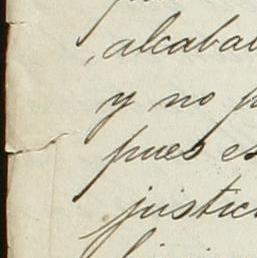 alcabal
y no p
pues es
justic